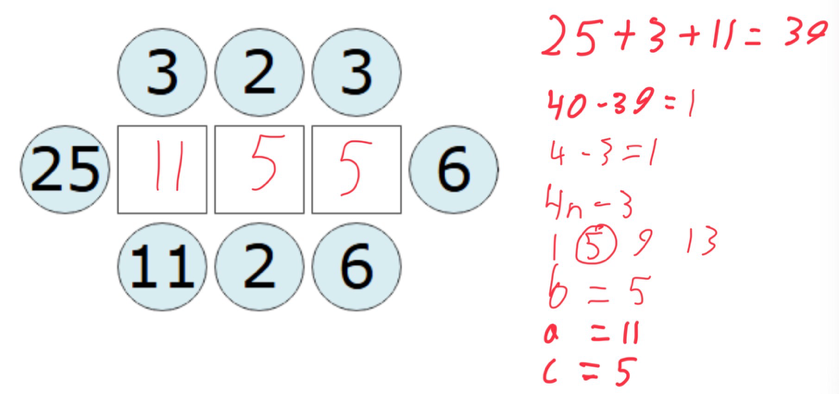 3 2 3
25 11 5 5 6
11 2 6
25 + 3 + 11 = 39
40 - 39 = 1
4 - 3 = 1
4n - 3
1 5 9 13
b = 5
a = 11
c = 5